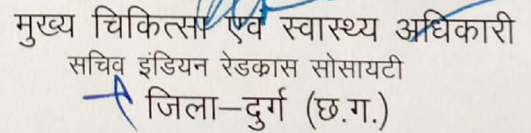 मुख्य चिकित्सा एवं स्वास्थ्य अधिकारी
सचिव इंडियन रेडकास सोसायटी
जिला–दुर्ग (छ.ग.)